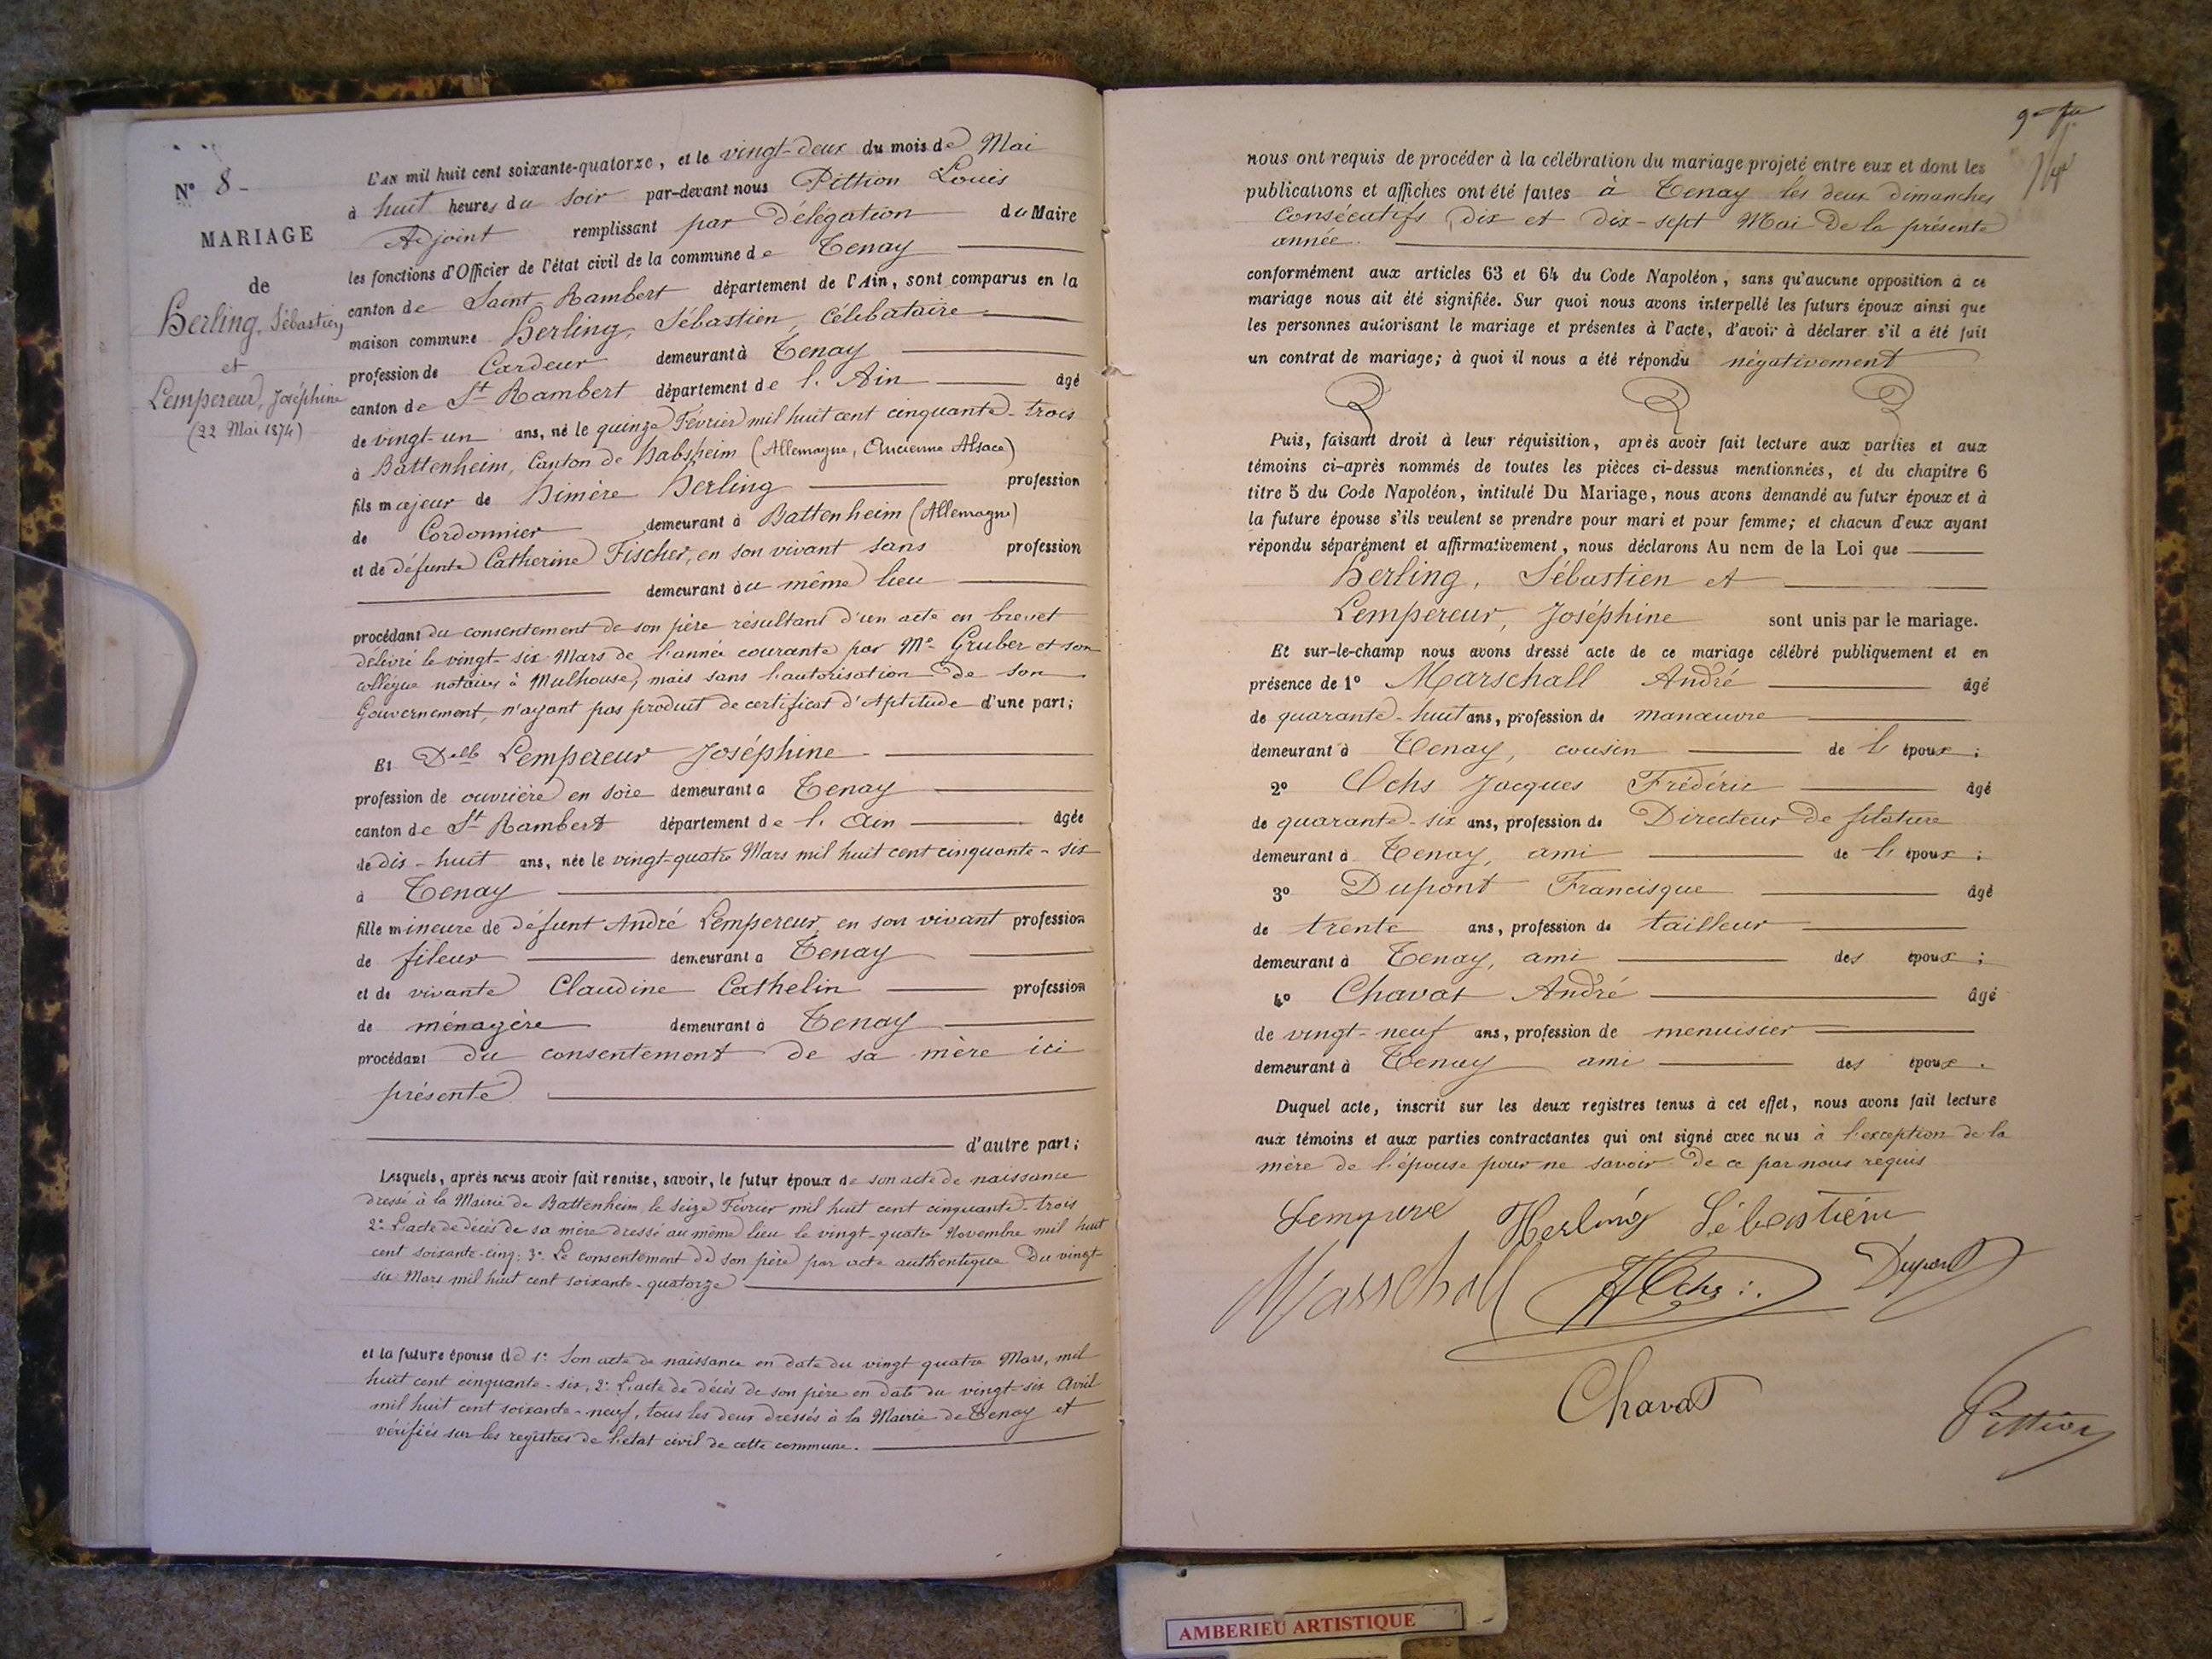 N° 8-
MARIAGE
de
Herling, Sébastien
et
Lempereur, Joséphine
(22 Mai 1874)
L'AN mil huit cent soixante-quatorze, et le vingt-deux du mois de Mai
à huit heures du soir par-devant nous Pittion Louis
Adjoint remplissant par Délégation du Maire
les fonctions d'Officier de l'état civil de la commune de Tenay
canton de Saint-Rambert département de l'Ain, sont comparus en la
maison commune Herling, Sébastien, Célibataire
profession de Cardeur demeurant à Tenay
canton de St Rambert département de l'Ain âgé
de vingt-un ans, né le quinze Février mil huit cent cinquante-trois
à Battenheim, Canton de Habsheim (Allemagne, Ancienne Alsace)
fils majeur de Himère Herling profession
de Cordonnier demeurant à Battenheim (Allemagne)
et de défunte Catherine Fischer, en son vivant sans profession
demeurant au même lieu
procédant du consentement de son père résultant d'un acte en brevet
délivré le vingt-six Mars de l'année courante par Me Gruber et son
collègue notaires à Mulhouse, mais sans l'autorisation de son
Gouvernement, n'ayant pas produit de certificat d'Aptitude d'une part;
Et Delle Lempereur Joséphine
profession de ouvrière en soie demeurant à Tenay
canton de St Rambert département de l'Ain âgée
de dix-huit ans, née le vingt-quatre Mars mil huit cent cinquante-six
à Tenay
fille mineure de défunt André Lempereur, en son vivant profession
de fileur demeurant à Tenay
et de vivante Claudine Cathelin profession
de ménagère demeurant à Tenay
procédant du consentement de sa mère ici
présente
d'autre part;
Lesquels, après nous avoir fait remise, savoir, le futur époux de son acte de naissance
dressé à la Mairie de Battenheim, le seize Février mil huit cent cinquante-trois
2° L'acte de décès de sa mère dressé au même lieu le vingt-quatre Novembre mil huit
cent soixante-cinq; 3° Le consentement de son père par acte authentique du vingt-
six Mars mil huit cent soixante-quatorze
et la future épouse de 1° Son acte de naissance en date du vingt quatre Mars, mil
huit cent cinquante-six, 2° L'acte de décès de son père en date du vingt-six Avril
mil huit cent soixante-neuf, tous les deux dressés à la Mairie de Tenay et
vérifiés sur les registres de l'état civil de cette commune.
nous ont requis de procéder à la célébration du mariage projeté entre eux et dont les
publications et affiches ont été faites à Tenay les deux dimanches
consécutifs dix et dix-sept Mai de la présente
année.
conformément aux articles 63 et 64 du Code Napoléon, sans qu'aucune opposition à ce
mariage nous ait été signifiée. Sur quoi nous avons interpellé les futurs époux ainsi que
les personnes autorisant le mariage et présentes à l'acte, d'avoir à déclarer s'il a été fait
un contrat de mariage; à quoi il nous a été répondu négativement
Puis, faisant droit à leur réquisition, après avoir fait lecture aux parties et aux
témoins ci-après nommés de toutes les pièces ci-dessus mentionnées, et du chapitre 6
titre 5 du Code Napoléon, intitulé Du Mariage, nous avons demandé au futur époux et à
la future épouse s'ils veulent se prendre pour mari et pour femme; et chacun d'eux ayant
répondu séparément et affirmativement, nous déclarons Au nom de la Loi que
Herling, Sébastien et
Lempereur, Joséphine sont unis par le mariage.
Et sur-le-champ nous avons dressé acte de ce mariage célébré publiquement et en
présence de 1° Marschall André âgé
de quarante-huit ans, profession de manœuvre
demeurant à Tenay, cousin de l'époux;
2° Ochs Jacques Frédéric âgé
de quarante-six ans, profession de Directeur de filature
demeurant à Tenay, ami de l'époux;
3° Dupont Francisque âgé
de trente ans, profession de tailleur
demeurant à Tenay, ami des époux;
4° Chavat André âgé
de vingt-neuf ans, profession de menuisier
demeurant à Tenay ami des époux.
Duquel acte, inscrit sur les deux registres tenus à cet effet, nous avons fait lecture
aux témoins et aux parties contractantes qui ont signé avec nous à l'exception de la
mère de l'épouse pour ne savoir de ce par nous requis
Herling Sébastien
Marschall Ochs Dupont
Chavat
Pittion
AMBERIEU ARTISTIQUE